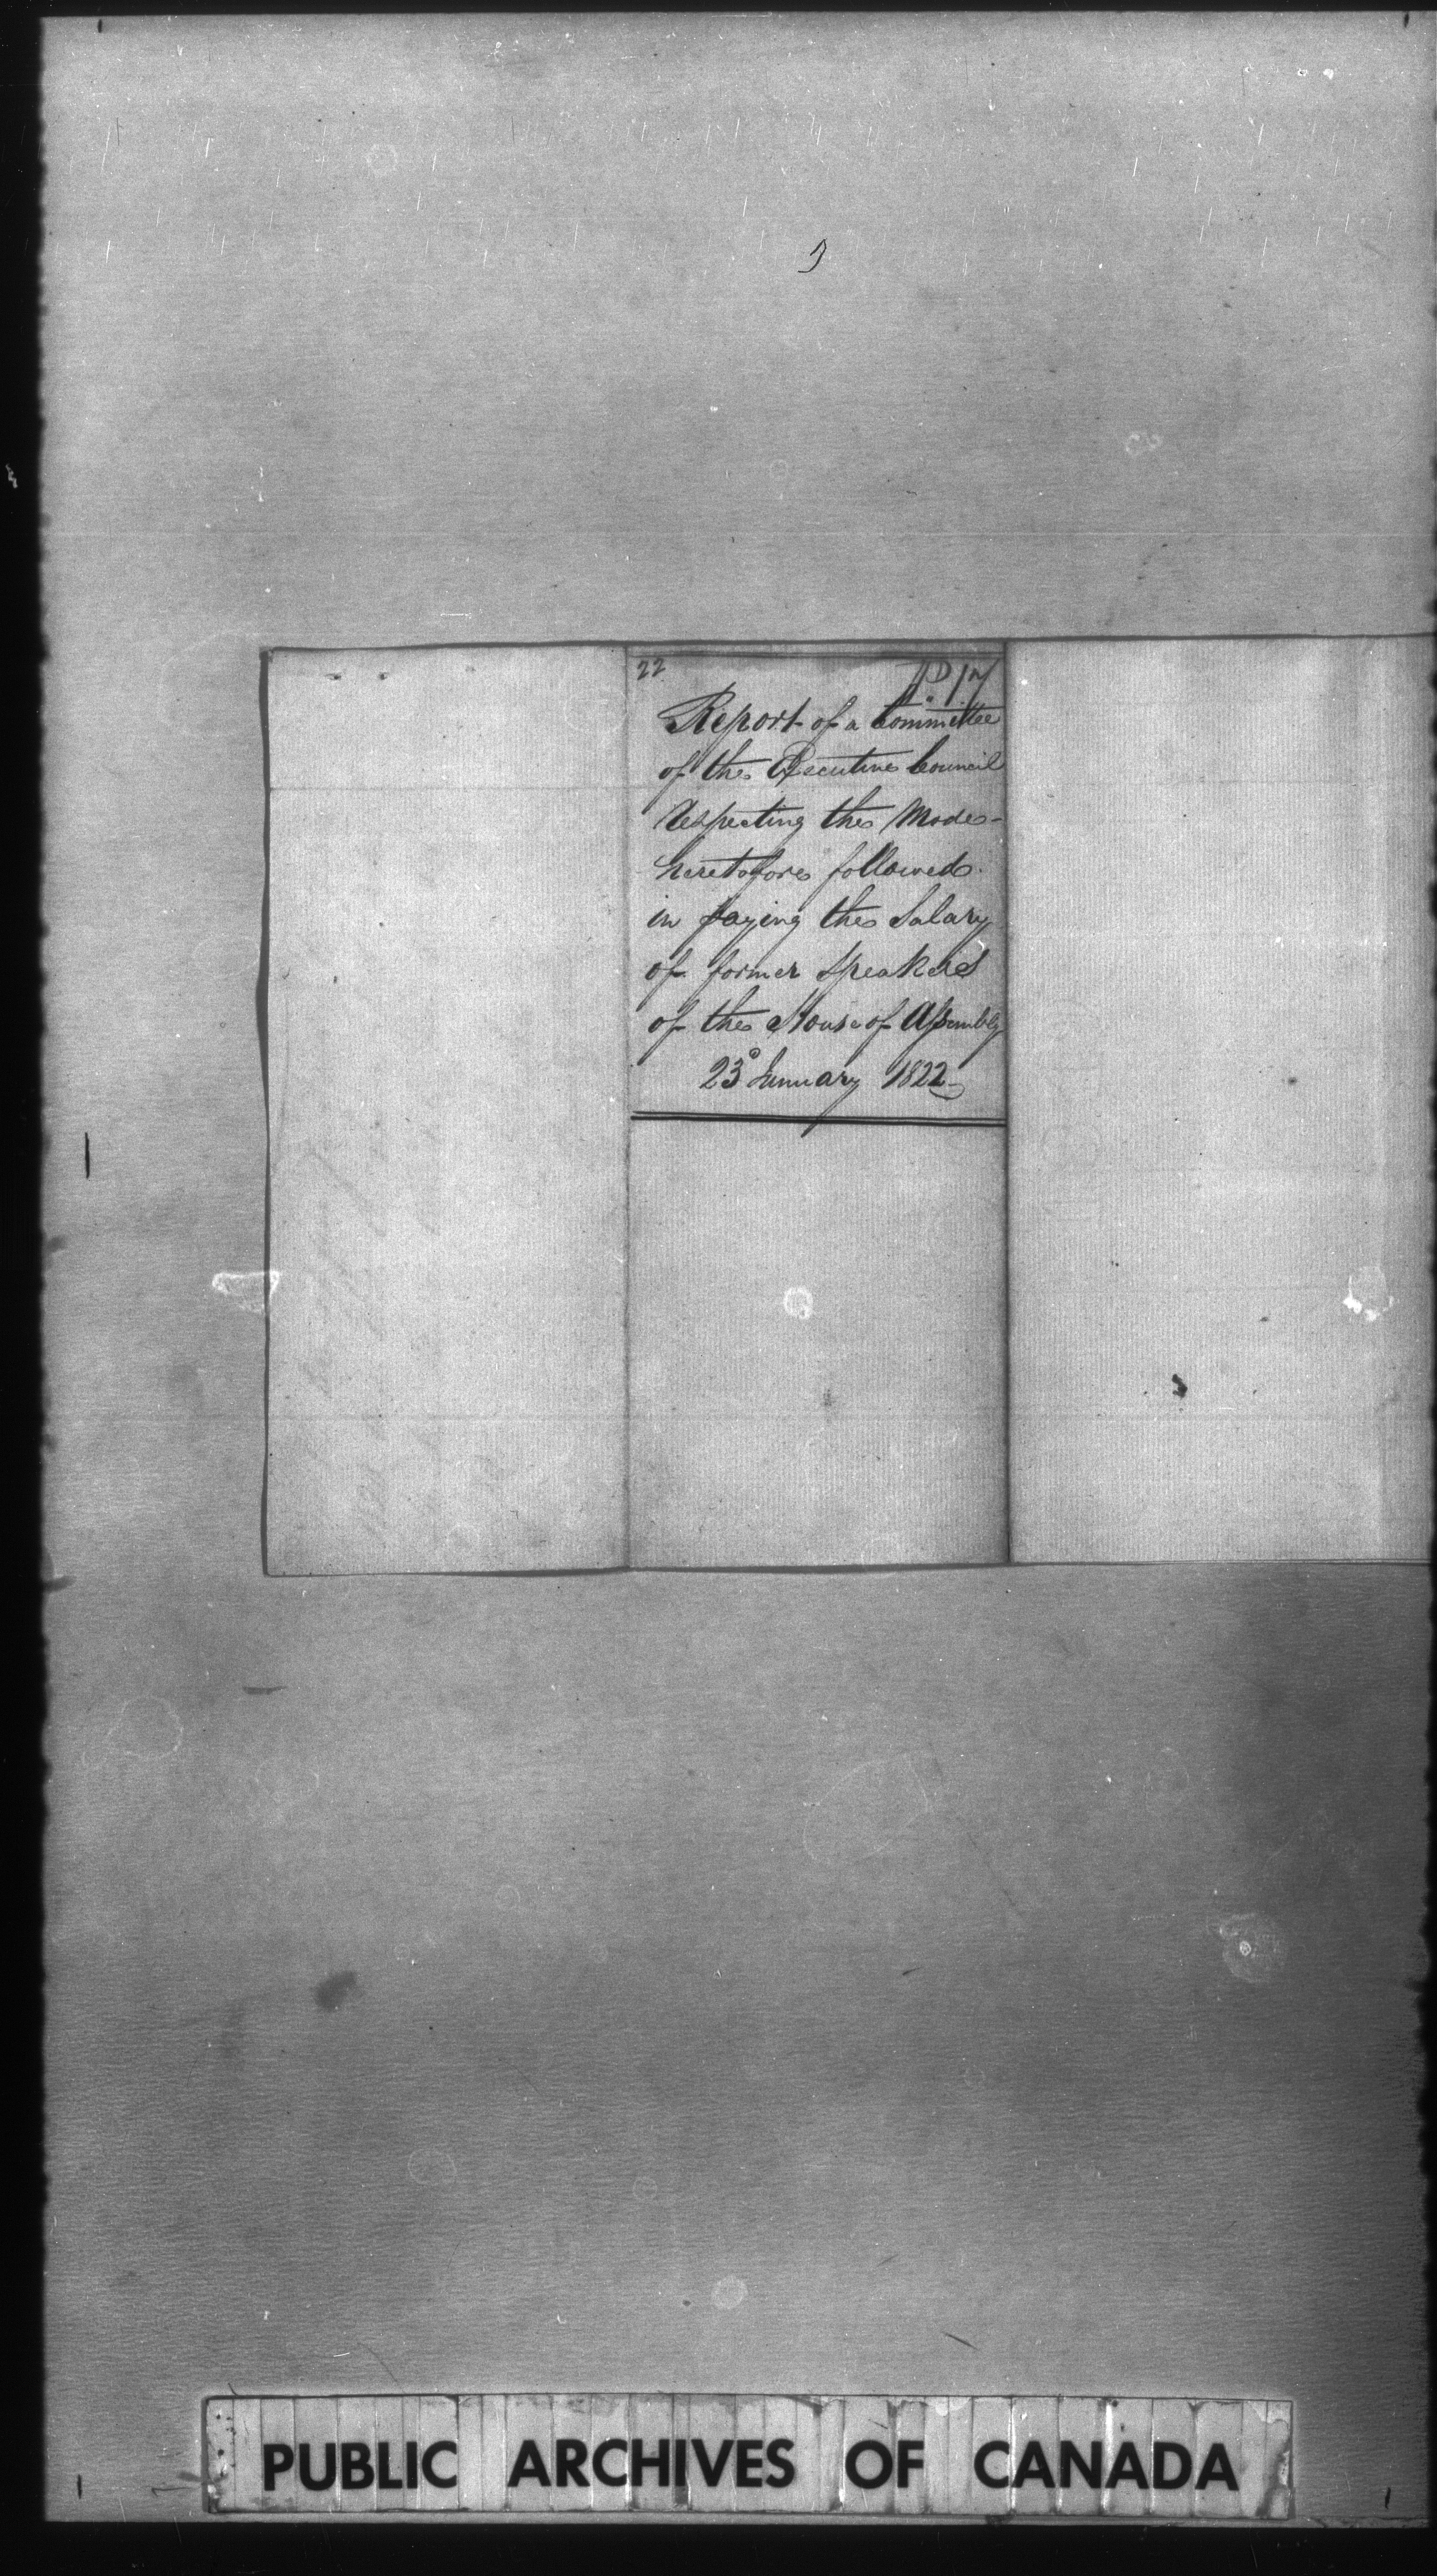 22
Report of a Committee
of the Executive Council
Respecting the Mode
heretofore followed
in paying the Salary
of former Speakers
of the House of Assembly
23d January 1822
PUBLIC ARCHIVES OF CANADA